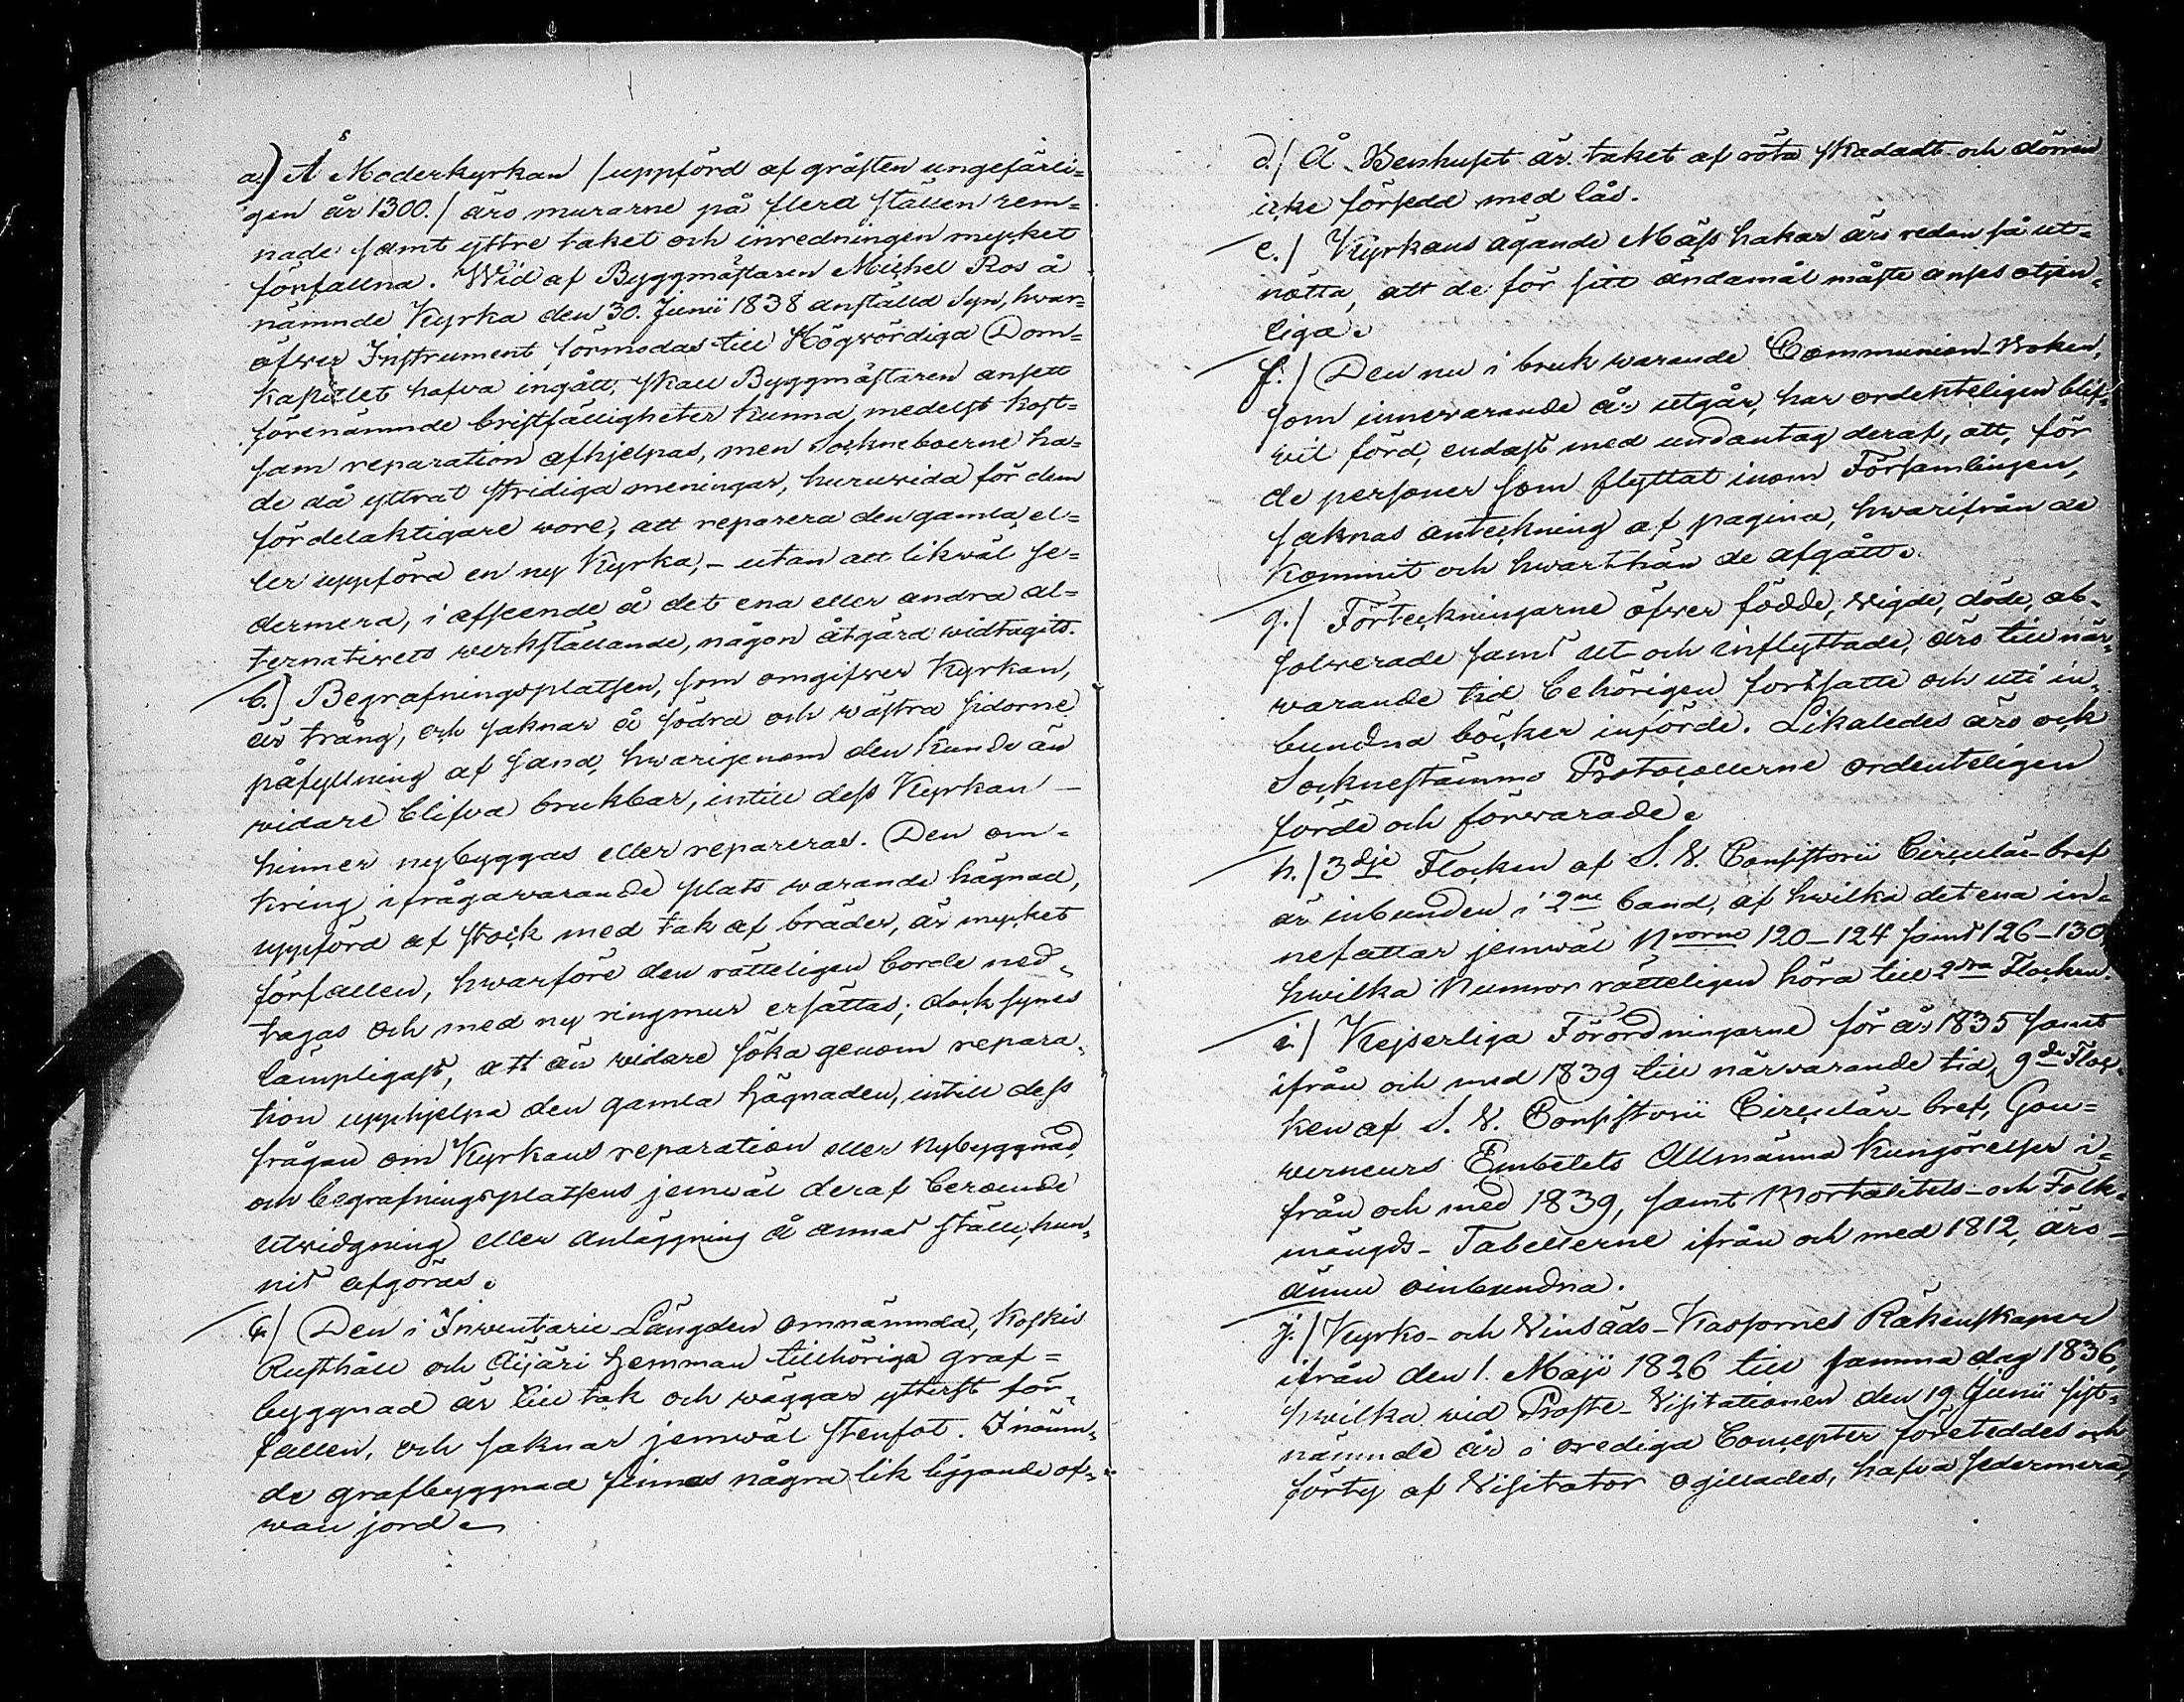 a.) Å Moderkyrkan /uppförd af gråsten ungefärli=
gen år 1300./ äro murarne på flera ställen rem=
nade samt yttre taket och inredningen mycket
förfallna. Wid af Byggmästaren Michel Ros å
nämnde Kyrka den 30. Junii 1838 anställd Syn, hwar=
öfwer Instrument förmodas till Högwördiga Dom=
kapitlet hafva ingått, skall Byggmästaren ansett
förenämnde bristfälligheter kunna medelst kost=
sam reparation afhjelpas, men Sockneboerne ha=
de då yttrat stridiga meningar, huruwida för dem
fördelaktigare wore, att reparera den gamla, el=
ler uppföra en ny Kyrka, – utan att likwäl se=
dermera, i afseende å det ena eller andra al=
ternativets werkställande, någon åtgärd widtagits.
b.) Begrafningsplatsen, som omgifwer Kyrkan,
är trång, och saknar å södra och wästra sidorne
påfyllning af sand, hwarigenom den kunde än
widare blifva brukbar, intill dess Kyrkan –
hinner nybyggas eller repareras. Den om=
kring ifrågawarande plats warande hägnad,
uppförd af stock med tak af bräder, är mycket
förfallen, hwarföre den rätteligen borde ned=
tagas och med ny ringmur ersättas; dock synes
lämpligast, att än widare söka genom repara=
tion upphjelpa den gamla hägnaden, intill dess
frågan om Kyrkans reparation eller nybyggnad,
och begrafningsplatsens jemwäl deraf beroende
utvidgning eller anläggning å annat ställe, hun=
nit afgöras.
c./ Den i Inventarie-Längden omnämnda, Koskis
Rusthåll och Äijäri hemman tillhöriga graf=
byggnad är till tak och wäggar ytterst för=
fallen, och saknar jemwäl stenfot. I nämn=
de grafbyggnad finnas några lik liggande of=
wan jord.
d./ Å Benhuset är taket af röta skadadt och dörren
icke försedd med lås.
e./ Kyrkans ägande Mässhakar äro redan så ut=
nötta, att de för sitt ändamål måste anses otjen=
liga.
f./ Den nu i bruk warande Communion-Boken,
som innewarande år utgår, har ordenteligen blif=
wit förd, endast med undantag deraf, att, för
de personer som flyttat inom Församlingen,
saknas anteckning af pagina, hwarifrån de
kommit och hwarthän de afgått.
g./ Förteckningarne öfwer födde, wigde, döde, ab=
solverade samt ut- och inflyttade, äro till när=
warande tid behörigen fortsatte och uti in=
bundna böcker införde. Likaledes äro ock
Sockenstämmo Protocollerne ordenteligen
förde och förwarade.
h./ 3dje Flocken af S. V. Consistorii Circulär-bref
är inbunden i 2ne band, af hwilka det ena in=
nefattar jemwäl Nrorne 120–124 samt 126–130,
hwilka Numror rätteligen höra till 2dra Flocken.
i./ Kejserliga Förordningarne för år 1835 samt
ifrån och med 1839 till närwarande tid, 9de Floc=
ken af S. V. Consistorii Circulär-bref, Gou=
verneurs Embetets Allmänna Kungörelser i=
från och med 1839, samt Mortalitets- och Folk=
mängds-Tabellerne ifrån och med 1812, äro –
ännu oinbundna.
j./ Kyrko- och Vinsäds-Kassornes Räkenskaper
ifrån den 1. Maji 1826 till samma dag 1836,
hwilka wid Proste-Visitationen den 19 Junii sist=
nämnde år i orediga Concepter företeddes och
förty af Visitator ogillades, hafva sedermera,